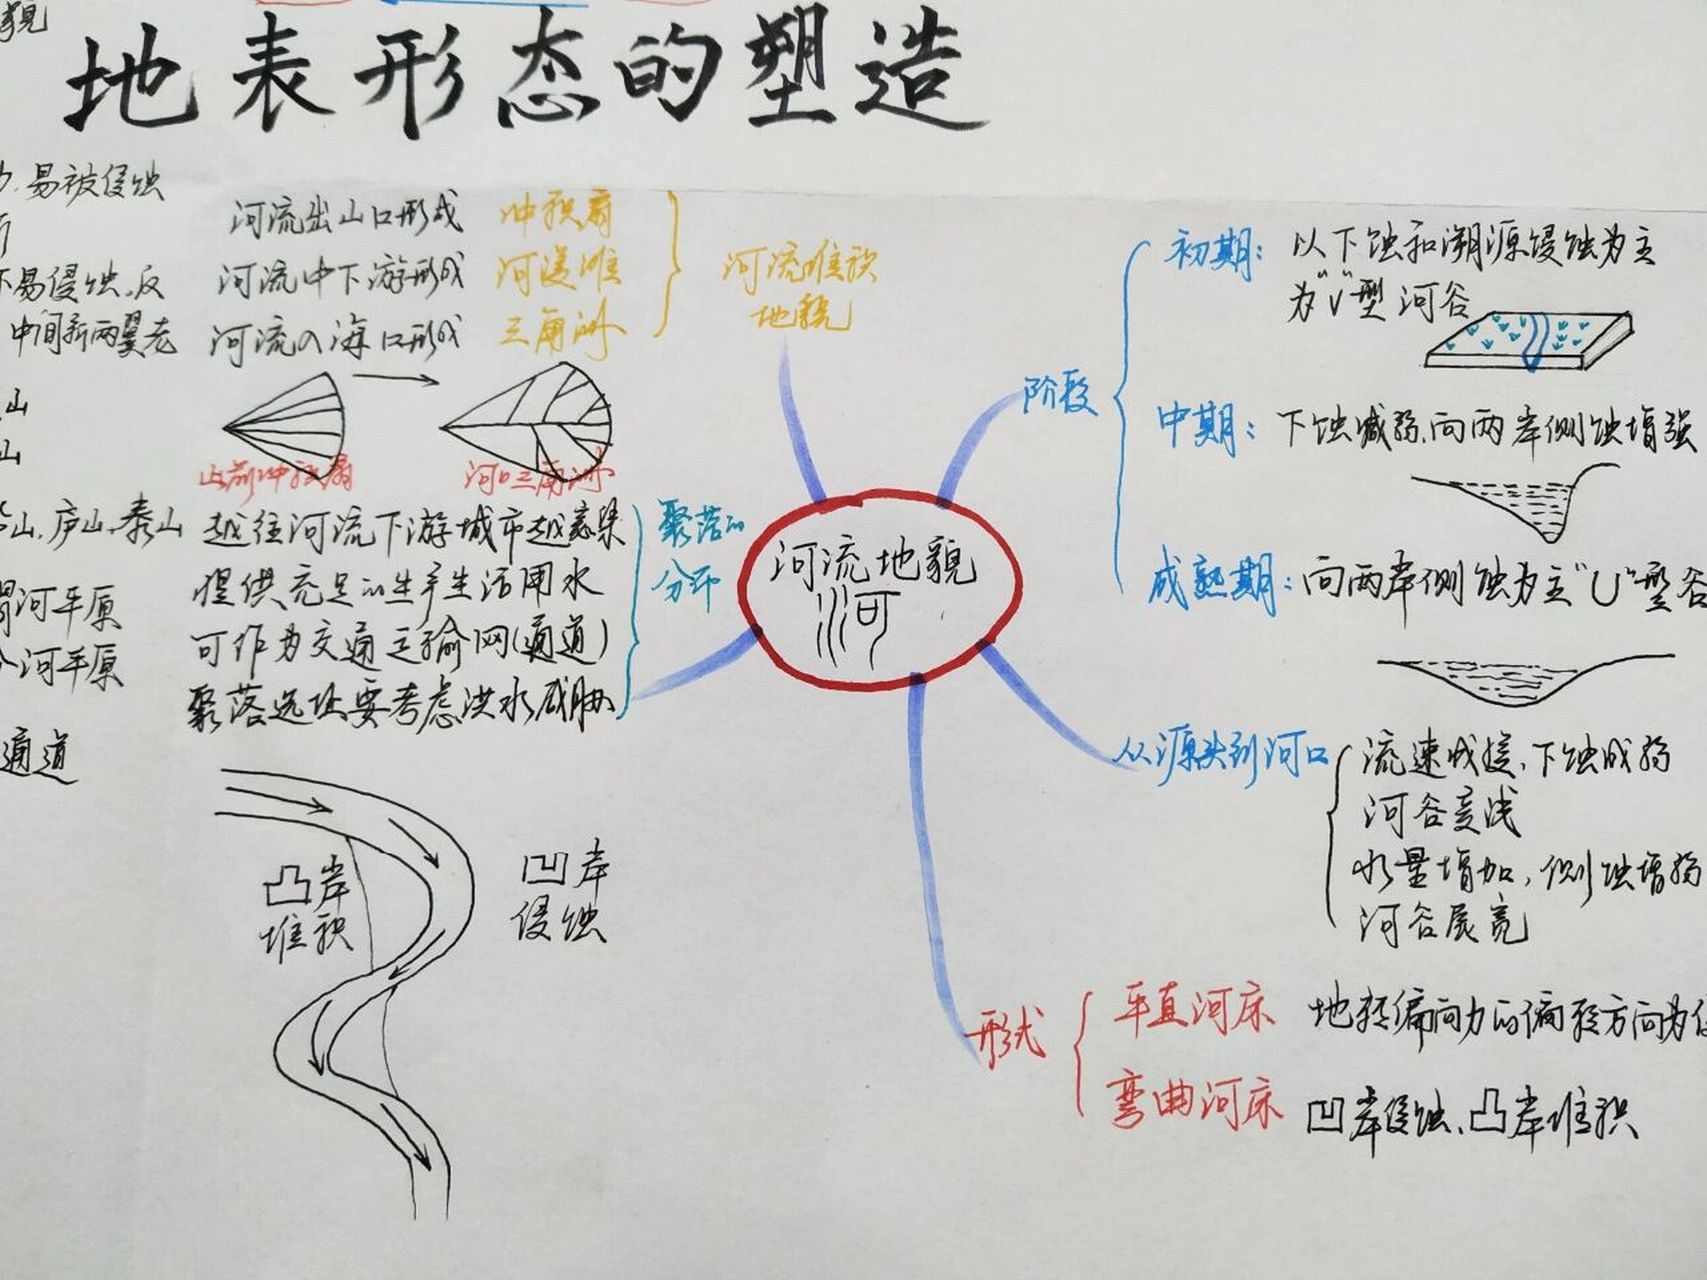 貌
地表形态的塑造
易被侵蚀
不易侵蚀,反
中间新两翼老
山
山
山,庐山,泰山
渭河平原
河平原
通道
河流出山口形成 冲积扇
河流中下游形成 河漫滩
河流入海口形成 三角洲
河流堆积
地貌
山前冲积扇
河口三角洲
越往河流下游城市越密集
提供充足的生产生活用水
可作为交通运输网(通道)
聚落选址要考虑洪水威胁
聚落的
分布
凸岸
堆积
凹岸
侵蚀
河流地貌
河
阶段
初期: 以下蚀和溯源侵蚀为主
为"V"型河谷
中期: 下蚀减弱,向两岸侧蚀增强
成熟期: 向两岸侧蚀为主"U"型谷
从源头到河口
流速成缓,下蚀成弱
河谷变浅
水量增加,侧蚀增强
河谷展宽
形式
平直河床 地转偏向力的偏移方向为
弯曲河床 凹岸侵蚀,凸岸堆积